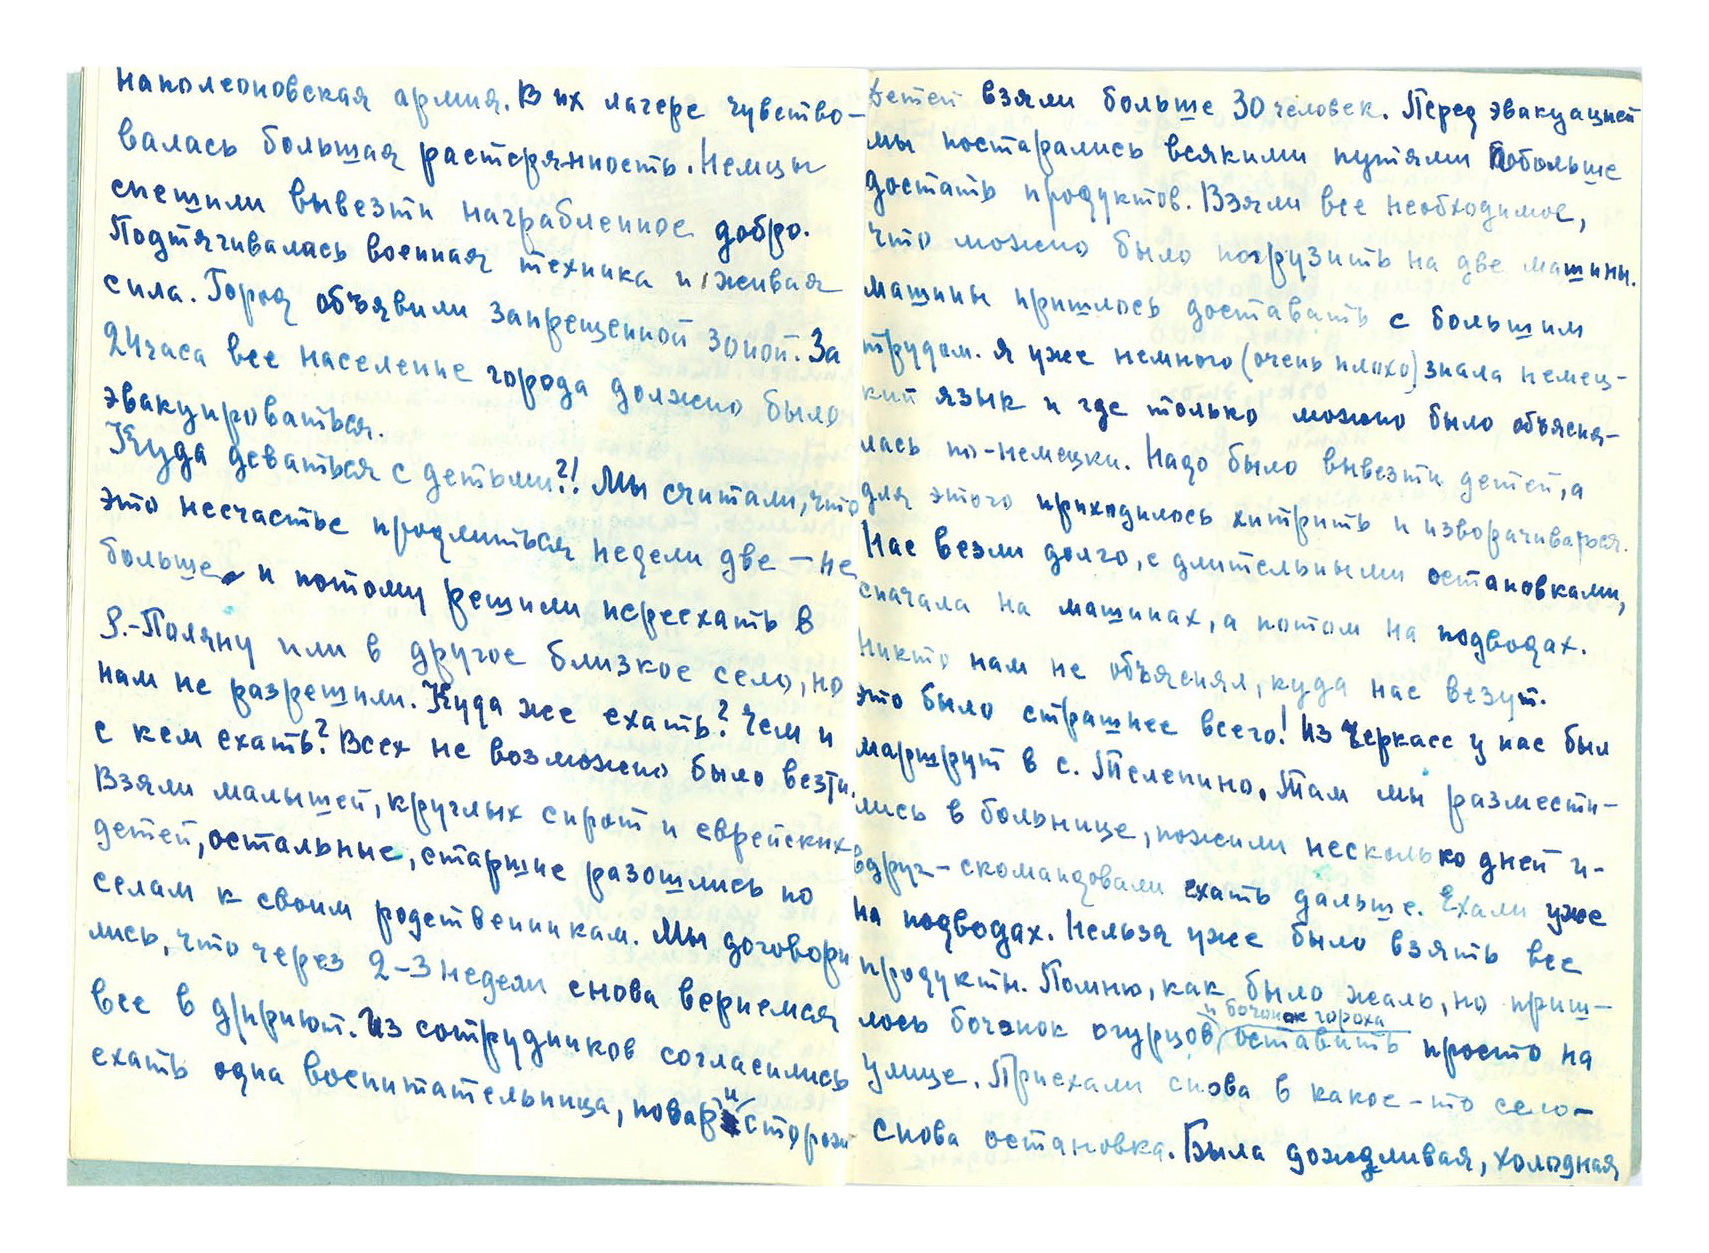 наполеоновская армия. В их лагере чувство-
валась большая растерянность. Немцы
спешили вывезти награбленное добро.
Подтягивалась военная техника и живая
сила. Город объявили запрещенной зоной. За
24 часа все население города должно было
эвакуироваться.
Куда деваться с детьми?! Мы считали, что
это несчастье продлиться недели две – не
больше и потому решили переехать в
Р.-Поляну или в другое близкое село, но
нам не разрешили. Куда же ехать? Чем и
с кем ехать? Всех не возможно было везти.
Взяли малышей, круглых сирот и еврейских
детей, остальные, старшие разошлись по
селам к своим родственникам. Мы договори
лись, что через 2-3 недели снова вернемся
все в д/приют. Из сотрудников согласились
ехать одна воспитательница, повар и сторож
детей взяли больше 30 человек. Перед эвакуацией
мы постарались всякими путями побольше
достать продуктов. Взяли все необходимое,
что можно было погрузить на две машины.
машины пришлось доставать с большим
трудом. Я уже немного (очень плохо) знала немец-
кий язык и где только можно было объясня-
лась по-немецки. Надо было вывезти детей, а
для этого приходилось хитрить и изворачиваться.
Нас везли долго, с длительными остановками,
сначала на машинах, а потом на подводах.
Никто нам не объяснял, куда нас везут.
Это было страшнее всего! Из Черкасс у нас был
маршрут в с. Телепино. Там мы размести-
лись в больнице, пожили несколько дней и-
вдруг – скомандовали ехать дальше. Ехали уже
на подводах. Нельзя уже было взять все
продукты. Помню, как было жаль, но приш-
лось бочонок огурцов и бочонок гороха оставить просто на
улице. Приехали снова в какое-то село –
снова остановка. Была дождливая, холодная